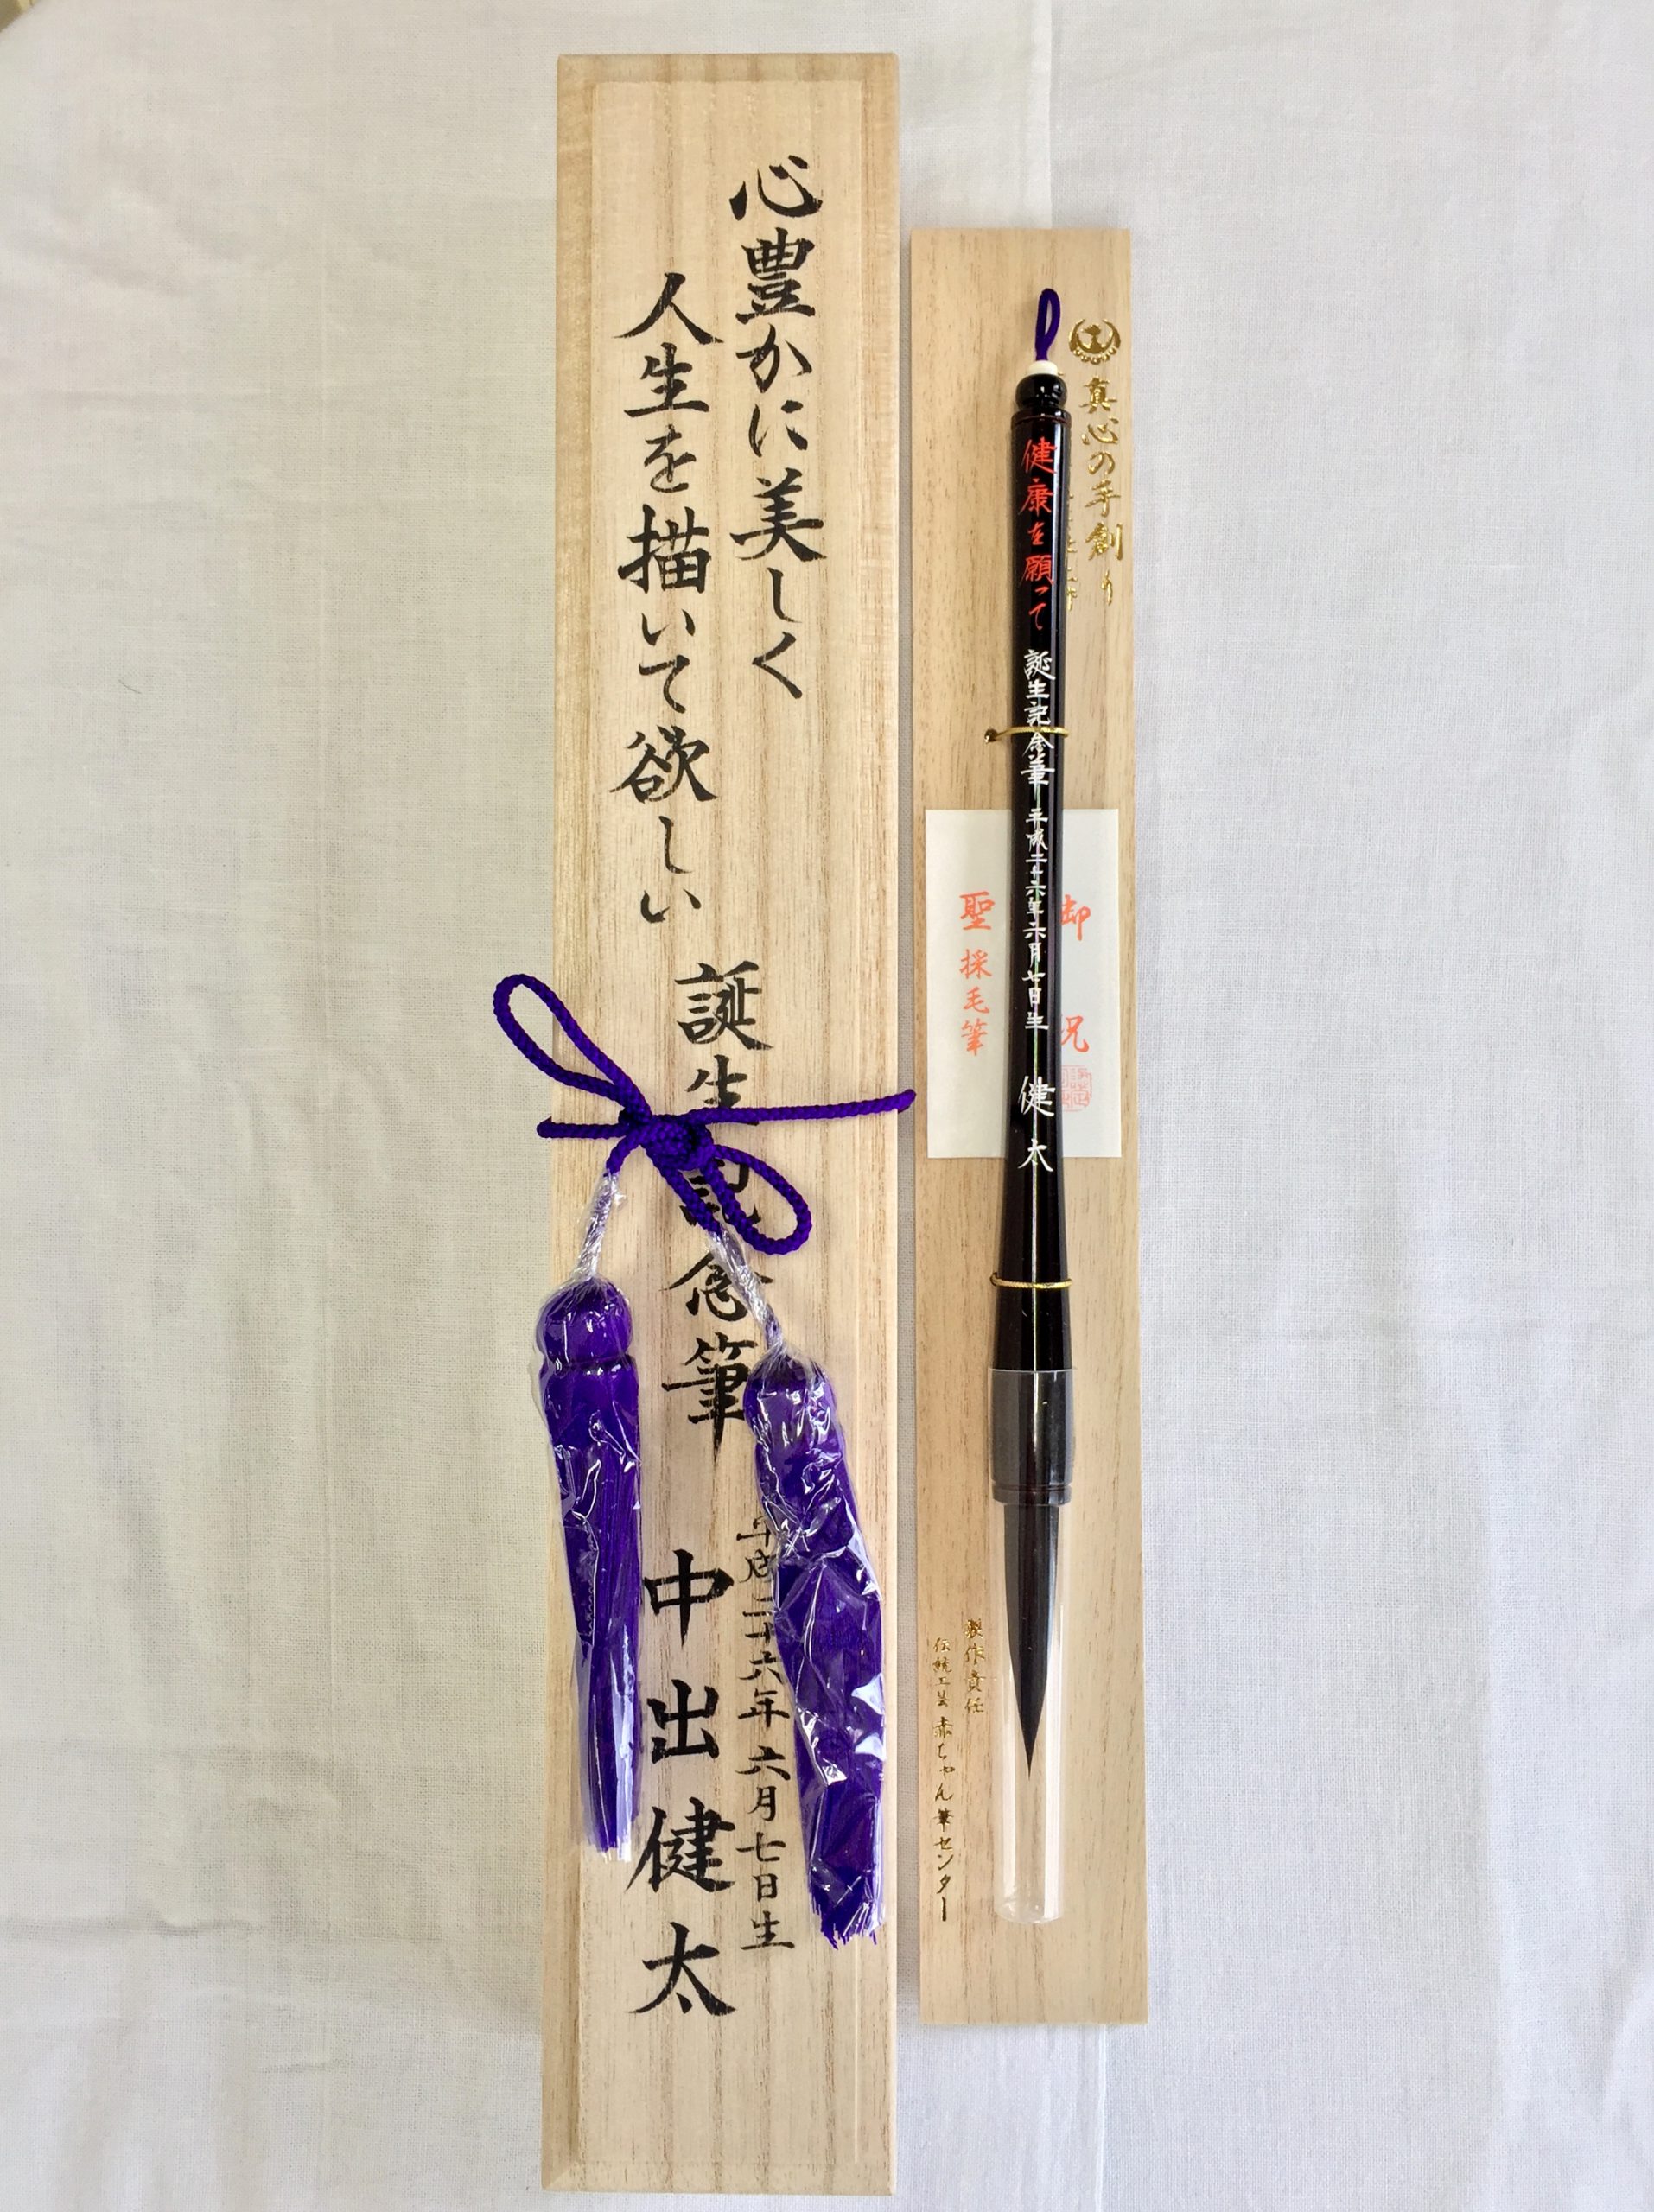 心豊かに美しく
人生を描いて欲しい
誕生記念筆
平成二十六年六月七日生
中出健太
真心の手創り
健康を願って 誕生記念筆 平成二十六年六月七日生 健太
御祝
聖採毛筆
製作責任
伝統工芸 赤ちゃん筆センター